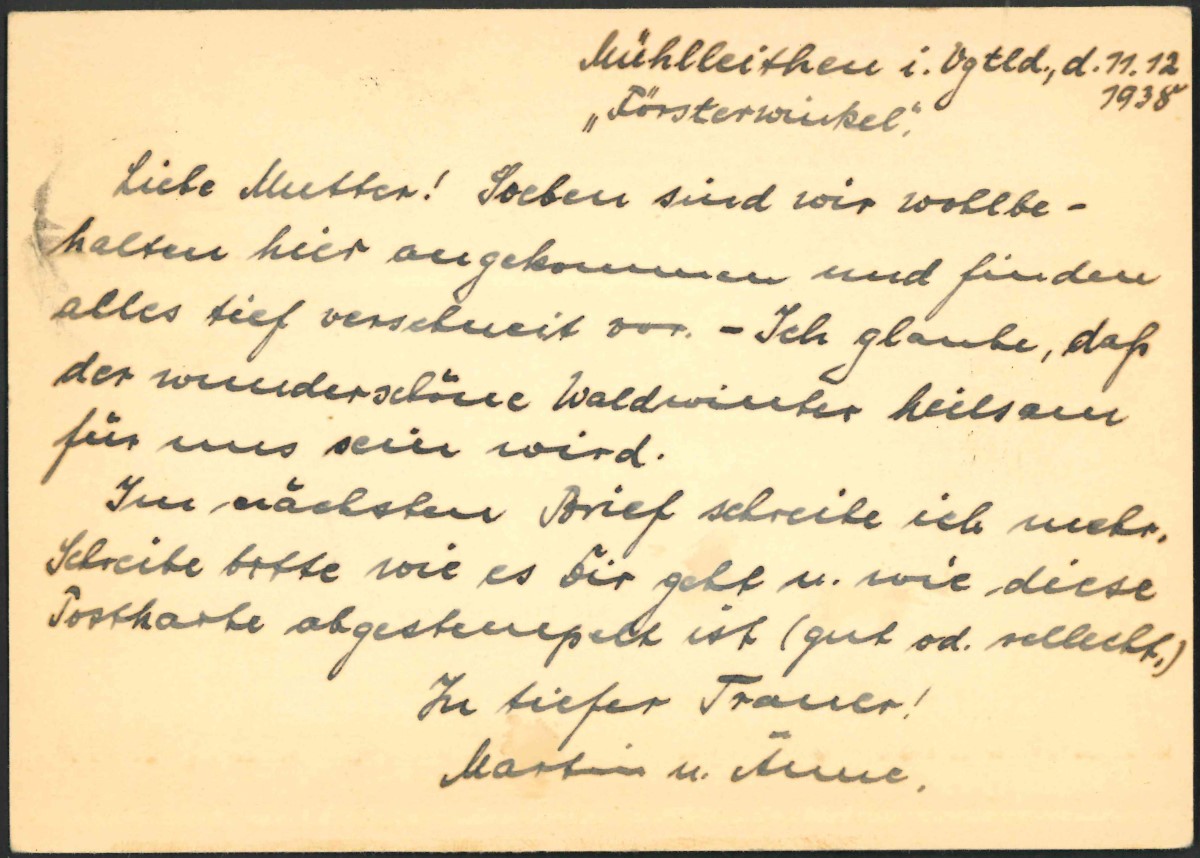 Mühlleithen i. Vgtld., d. 11.12
1938
„Försterwinkel".
Liebe Mutter! Soeben sind wir wohlbe-
halten hier angekommen und finden
alles tief verschneit vor. – Ich glaube, daß
der wunderschöne Waldwinter heilsam
für uns sein wird.
Im nächsten Brief schreibe ich mehr.
Schreibe bitte wie es Dir geht u. wie diese
Postkarte abgestempelt ist (gut od. schlecht.)
In tiefer Trauer!
Martin u. Änne.